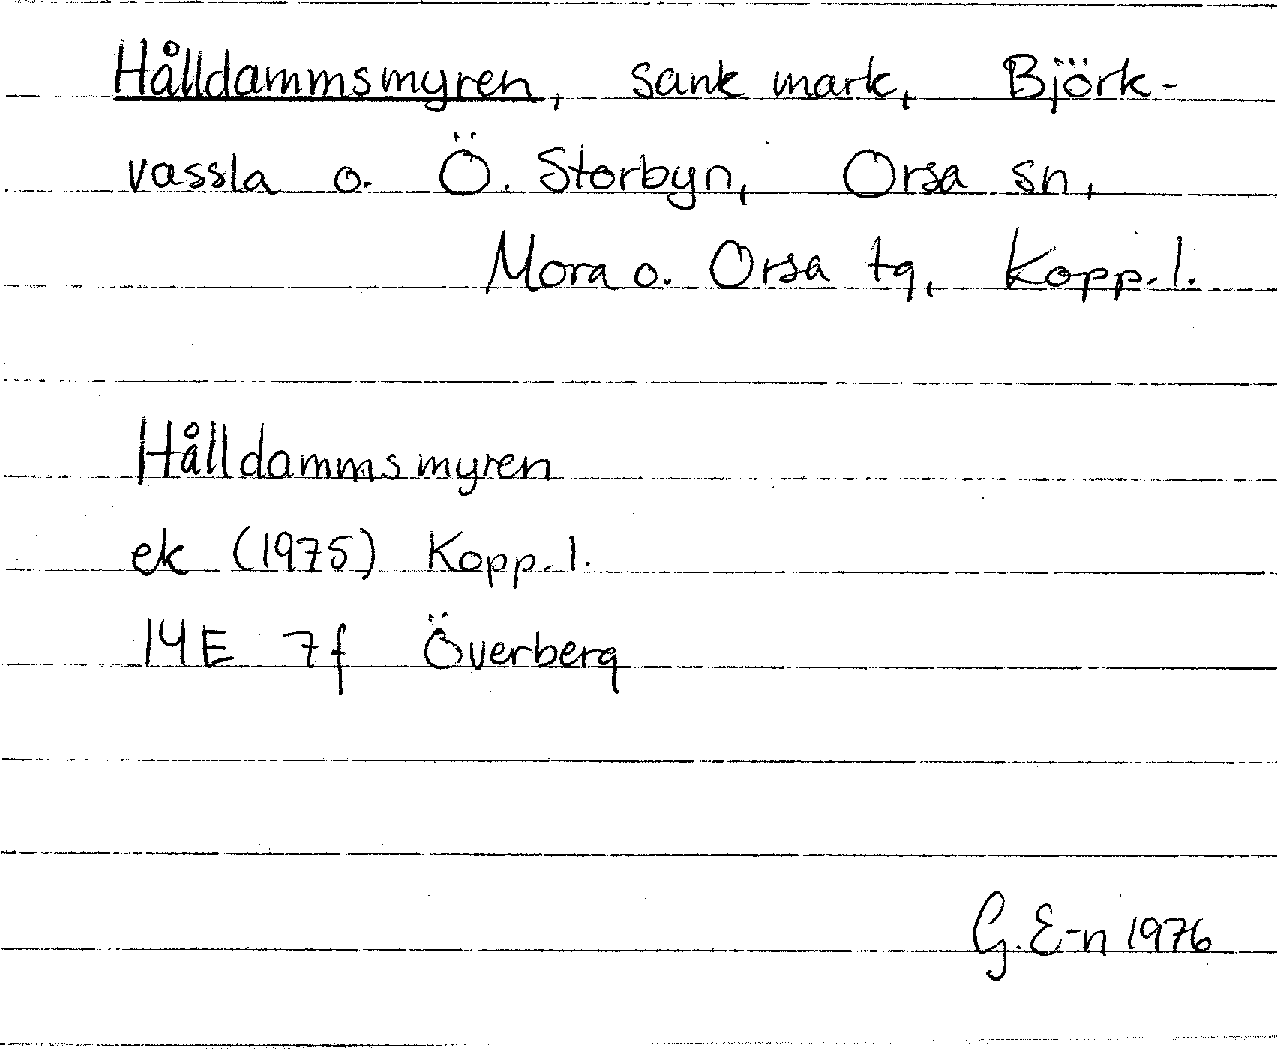 Hålldammsmyren, sank mark, Björk-
vassla o. Ö. Storbyn, Orsa sn,
Mora o. Orsa tg, Kopp. l.
Hålldammsmyren
ek (1975) Kopp. l.
14E 7f Överberg
G. E-n 1976